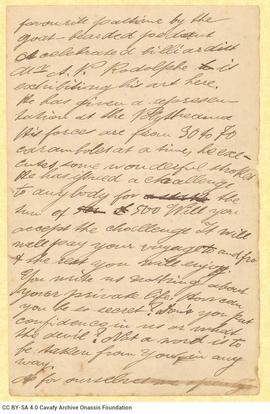 favourite pastime by the
goat-bearded pedant
A celebrated billiardist
Mr A. P. Rodolphe is
exhibiting his art here.
He has given a represen-
tation at the
His forces are from 30 to 70
caramboles at a time, he exe-
cutes some wonderful strokes
He has issued a challenge
to anybody for the
sum of £500 Will you
accept the challenge it will
well pay your voyage to and fro
& the rest you will enjoy.
You write us nothing about
your private life. How can
you be so secret? Don't you put
confidence in us or what
the devil! Not a word is to
be taken from you in any
way.
As for ourselves
CC BY-SA 4.0 Cavafy Archive Onassis Foundation